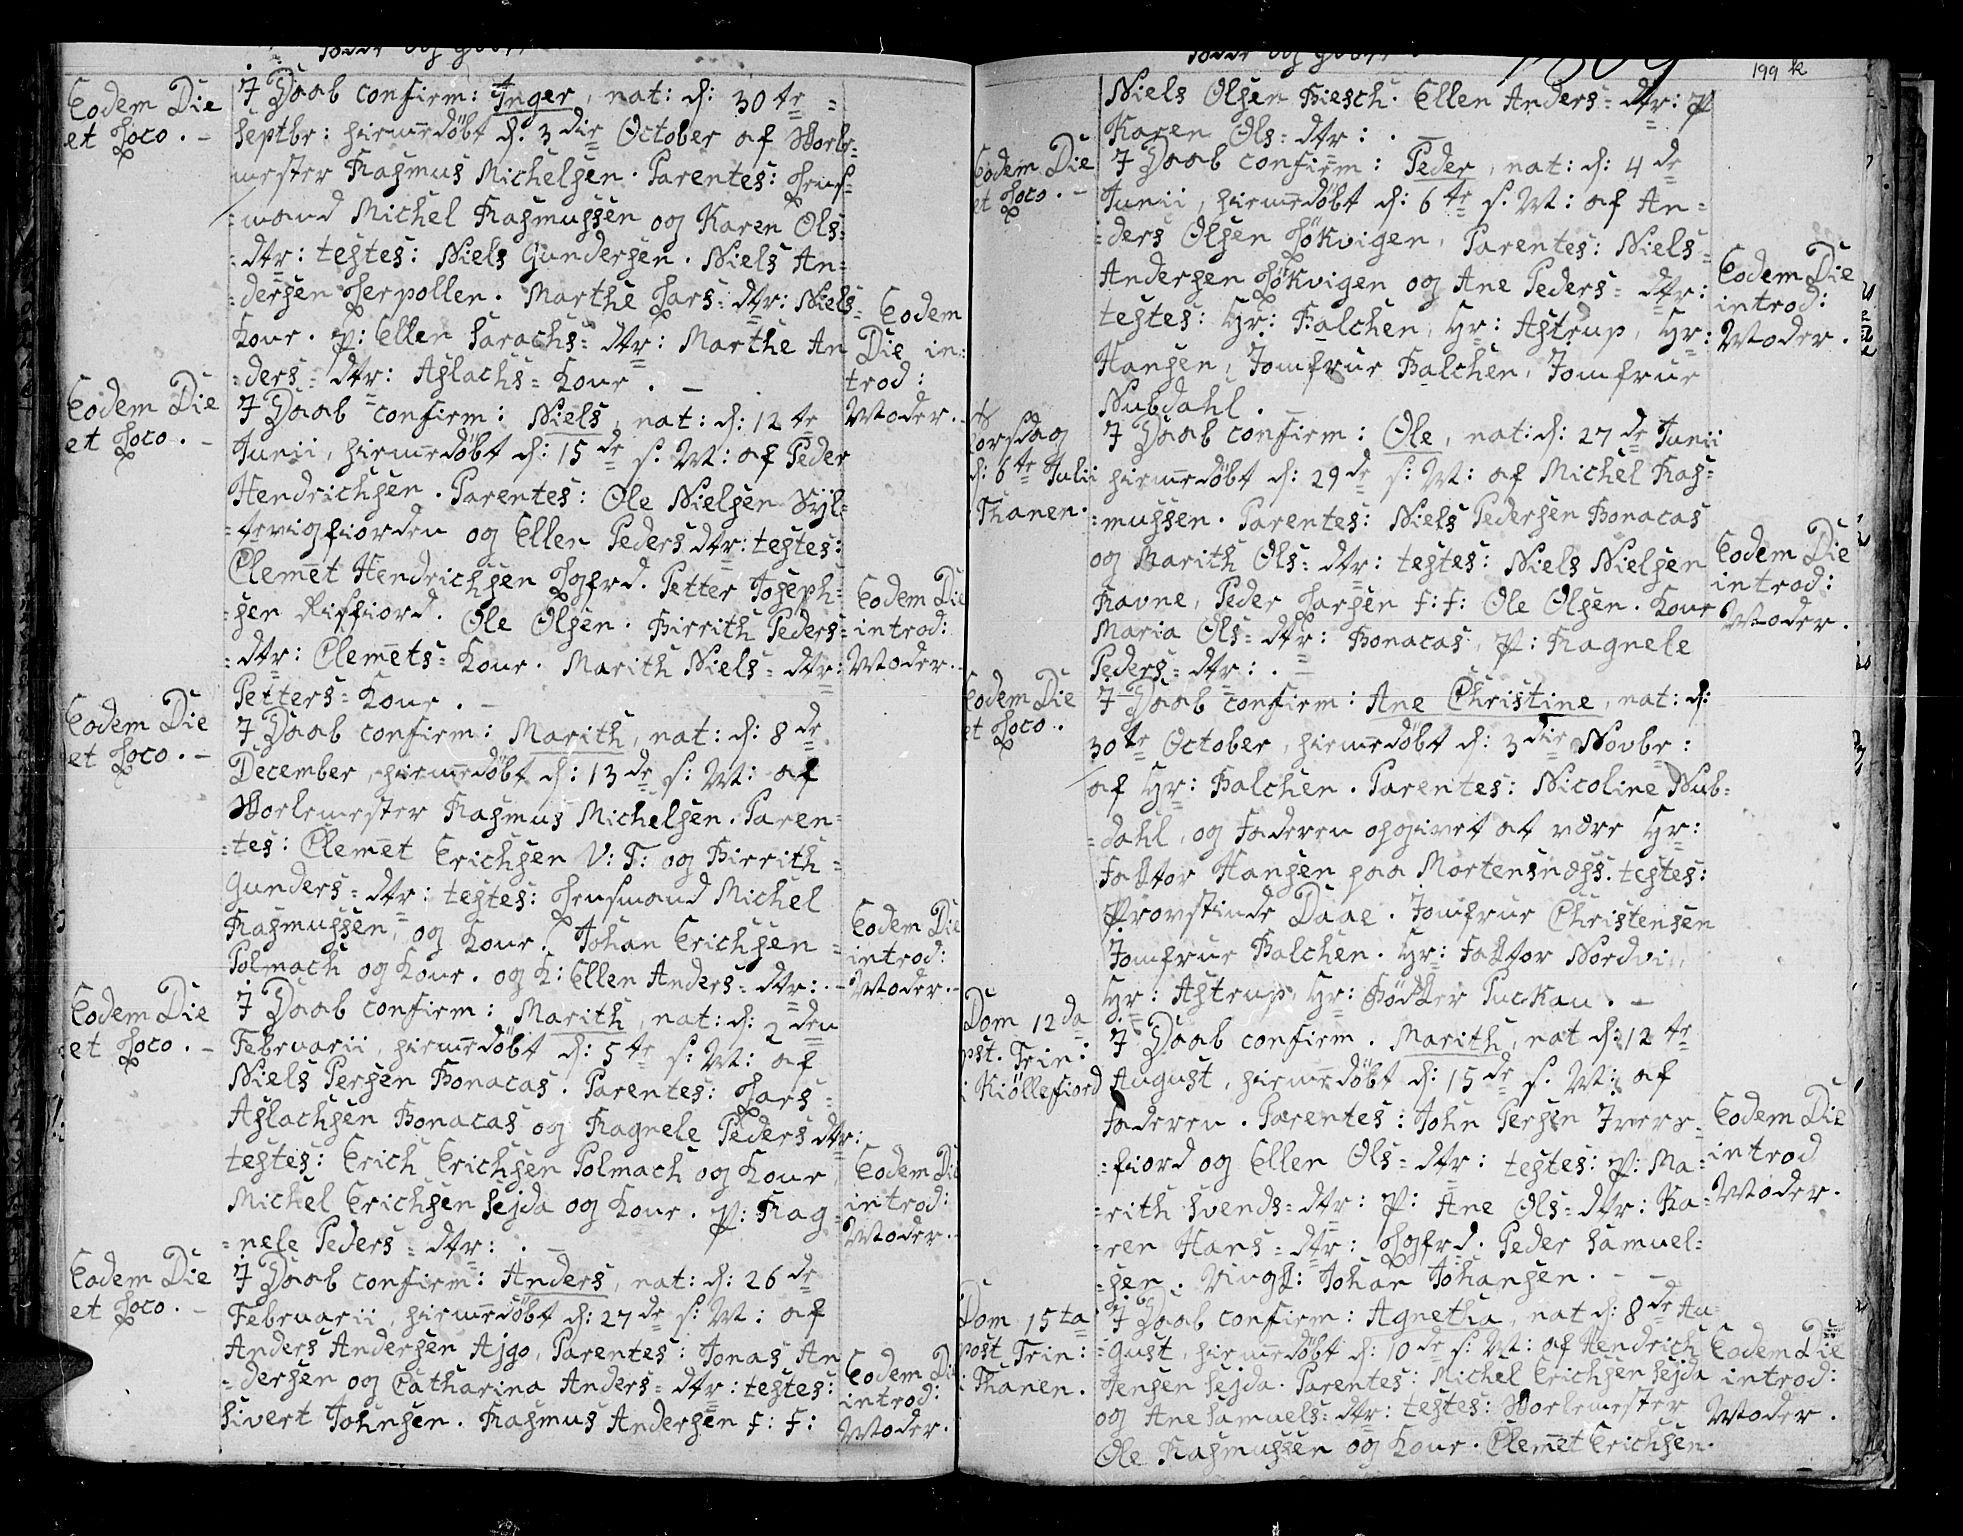 Fødde og
Eodem Die
et Loco. -
I Daab confirm: Inger, nat: d: 30te
Septbr: hiemedøbt d: 3die October af Skole-
mester Rasmus Michelsen. Parentes: Lens-
=mand Michel Rasmussen og Karen Ols=
=dtr: testes: Niels Gundersen. Niels An=
=dersen Lerpollen. Marthe Lars=dtr: Niels=
Kone. P: Ellen Sarachs=dtr: Marthe An
=ders=dtr: Aslachs=Kone. -
Eodem
Die in:
trod:
Moder. -
Eodem Die
et Loco. -
I Daab confirm: Niels, nat: d: 12te
Junii, hiemedøbt d: 15de s: M: af Peder
Hendrichsen. Parentes: Ole Nielsen Syl-
=tevigfiorden og Ellen Peders dtr: testes:
Clemet Hendrichsen Lgfrd. Petter Joseph=
=sen Riffiord. Ole Olsen. Birrith Peders=
=dtr: Clemets=Kone. Marith Niels=dtr:
Petters=Kone. -
Eodem Die
introd:
Moder. -
Eodem Die
et Loco. -
I Daab confirm: Marith, nat: d: 8de
December, hiemedøbt d: 13de s: M: af
Skolemester Rasmus Michelsen. Paren=
=tes: Clemet Erichsen V: F: og Birrith=
Gunders=dtr: testes: Lensmand Michel
Rasmussen, og Kone. Johan Erichsen=
Polmach og Kone. og K: Ellen Anders=dtr: -
Eodem Die
introd:
Moder. -
Eodem Die
et Loco. -
I Daab confirm: Marith, nat: d: 2den
Februarii, hiemedøbt d: 5te s: M: af
Niels Persen Bonacas. Parentes: Lars=
Aslachsen Bonacas og Ragnele Peders dtr:
testes: Erich Erichsen Polmach og Kone,
Michel Erichsen Sejda og Kone. P: Rag=
=nele Peders=dtr: . -
Eodem Die
introd:
Moder. -
Eodem Die
et Loco. -
I Daab confirm: Anders, nat: d: 26de
Februarii, hiemedøbt d: 27de s: M: af
Anders Andersen Ajgo, Parentes: Jonas An
=dersen og Catharina Anders=dtr: testes:
Sivert Johnsen. Rasmus Andersen F: F:
Eodem Di
introd:
Moder.
Fødde og
1809
199
Niels Olsen Biesch. Ellen Anders=dtr: P
Karen Ols=dtr: . -
Eodem Die
et Loco. -
I Daab confirm: Peder, nat: d: 4de
Junii, hiemedøbt d: 6te s: M: af An=
=ders Olsen Løkvigen, Parentes: Niels=
Andersen Løkvigen og Ane Peders=dtr:
testes: Hr: Falchen, Hr: Astrup, Hr:
Hansen, Jomfrue Balchen, Jomfrue
Nubdahl.
Eodem Die
introd:
Moder.
Torsdag
d: 6te Julii
Thanen.
I Daab confirm: Ole, nat: d: 27de Junii
hiemedøbt d: 29de s: M: af Michel Ras=
=mussen. Parentes: Niels Pedersen Bonacas
og Marith Ols=dtr: testes: Niels Nielsen
Ravne, Peder Larsen F: F: Ole Olsen. Kone
Maria Ols=dtr: Bonacas, P: Ragnele
Peders=dtr: . -
Eodem Die
introd:
Moder.
Eodem Die
et Loco.
I Daab confirm: Ane Christine, nat: d:
30te October, hiemedøbt d: 3die Novbr:
af Hr: Balchen. Parentes: Nicoline Nub=
=dahl, og Faderen opgivet at være Hr:
Faktor Hansen paa Mortensnæss. testes:
Provstinde Daae. Jomfrue Christensen
Jomfrue Balchen. Hr: Faktor Nordvi,
Hr: Astrup, Hr: Bødker Puckau. -
Dom 12da
pst. Trin:
i Kiöllefiord
I Daab confirm. Marith, nat d: 12te
August, hiemedøbt d: 15de s. M: af
Faderen. Parentes: John Persen Ivere=
=fiord og Ellen Ols=dtr: testes: P: Ma=
=rith Svends=dtr: P: Ane Ols=dtr: Ka=
=ren Hans=dtr: Lgfrd. Peder Samuel=
=sen. Johan Johansen. - -
Eodem Die
introd
Moder.
Dom 15ta
post Trin:
i Thanen.
I Daab confirm: Agnetha, nat d: 8de Au=
=gust, hiemedøbt d: 10de s: M: af Hendrich
Jensen Sejda. Parentes: Michel Erichsen Sejda
og Ane Samuels=dtr: testes: Skolemester
Ole Rasmussen og Kone. Clemet Erichsen.
Eodem Die
introd:
Moder.